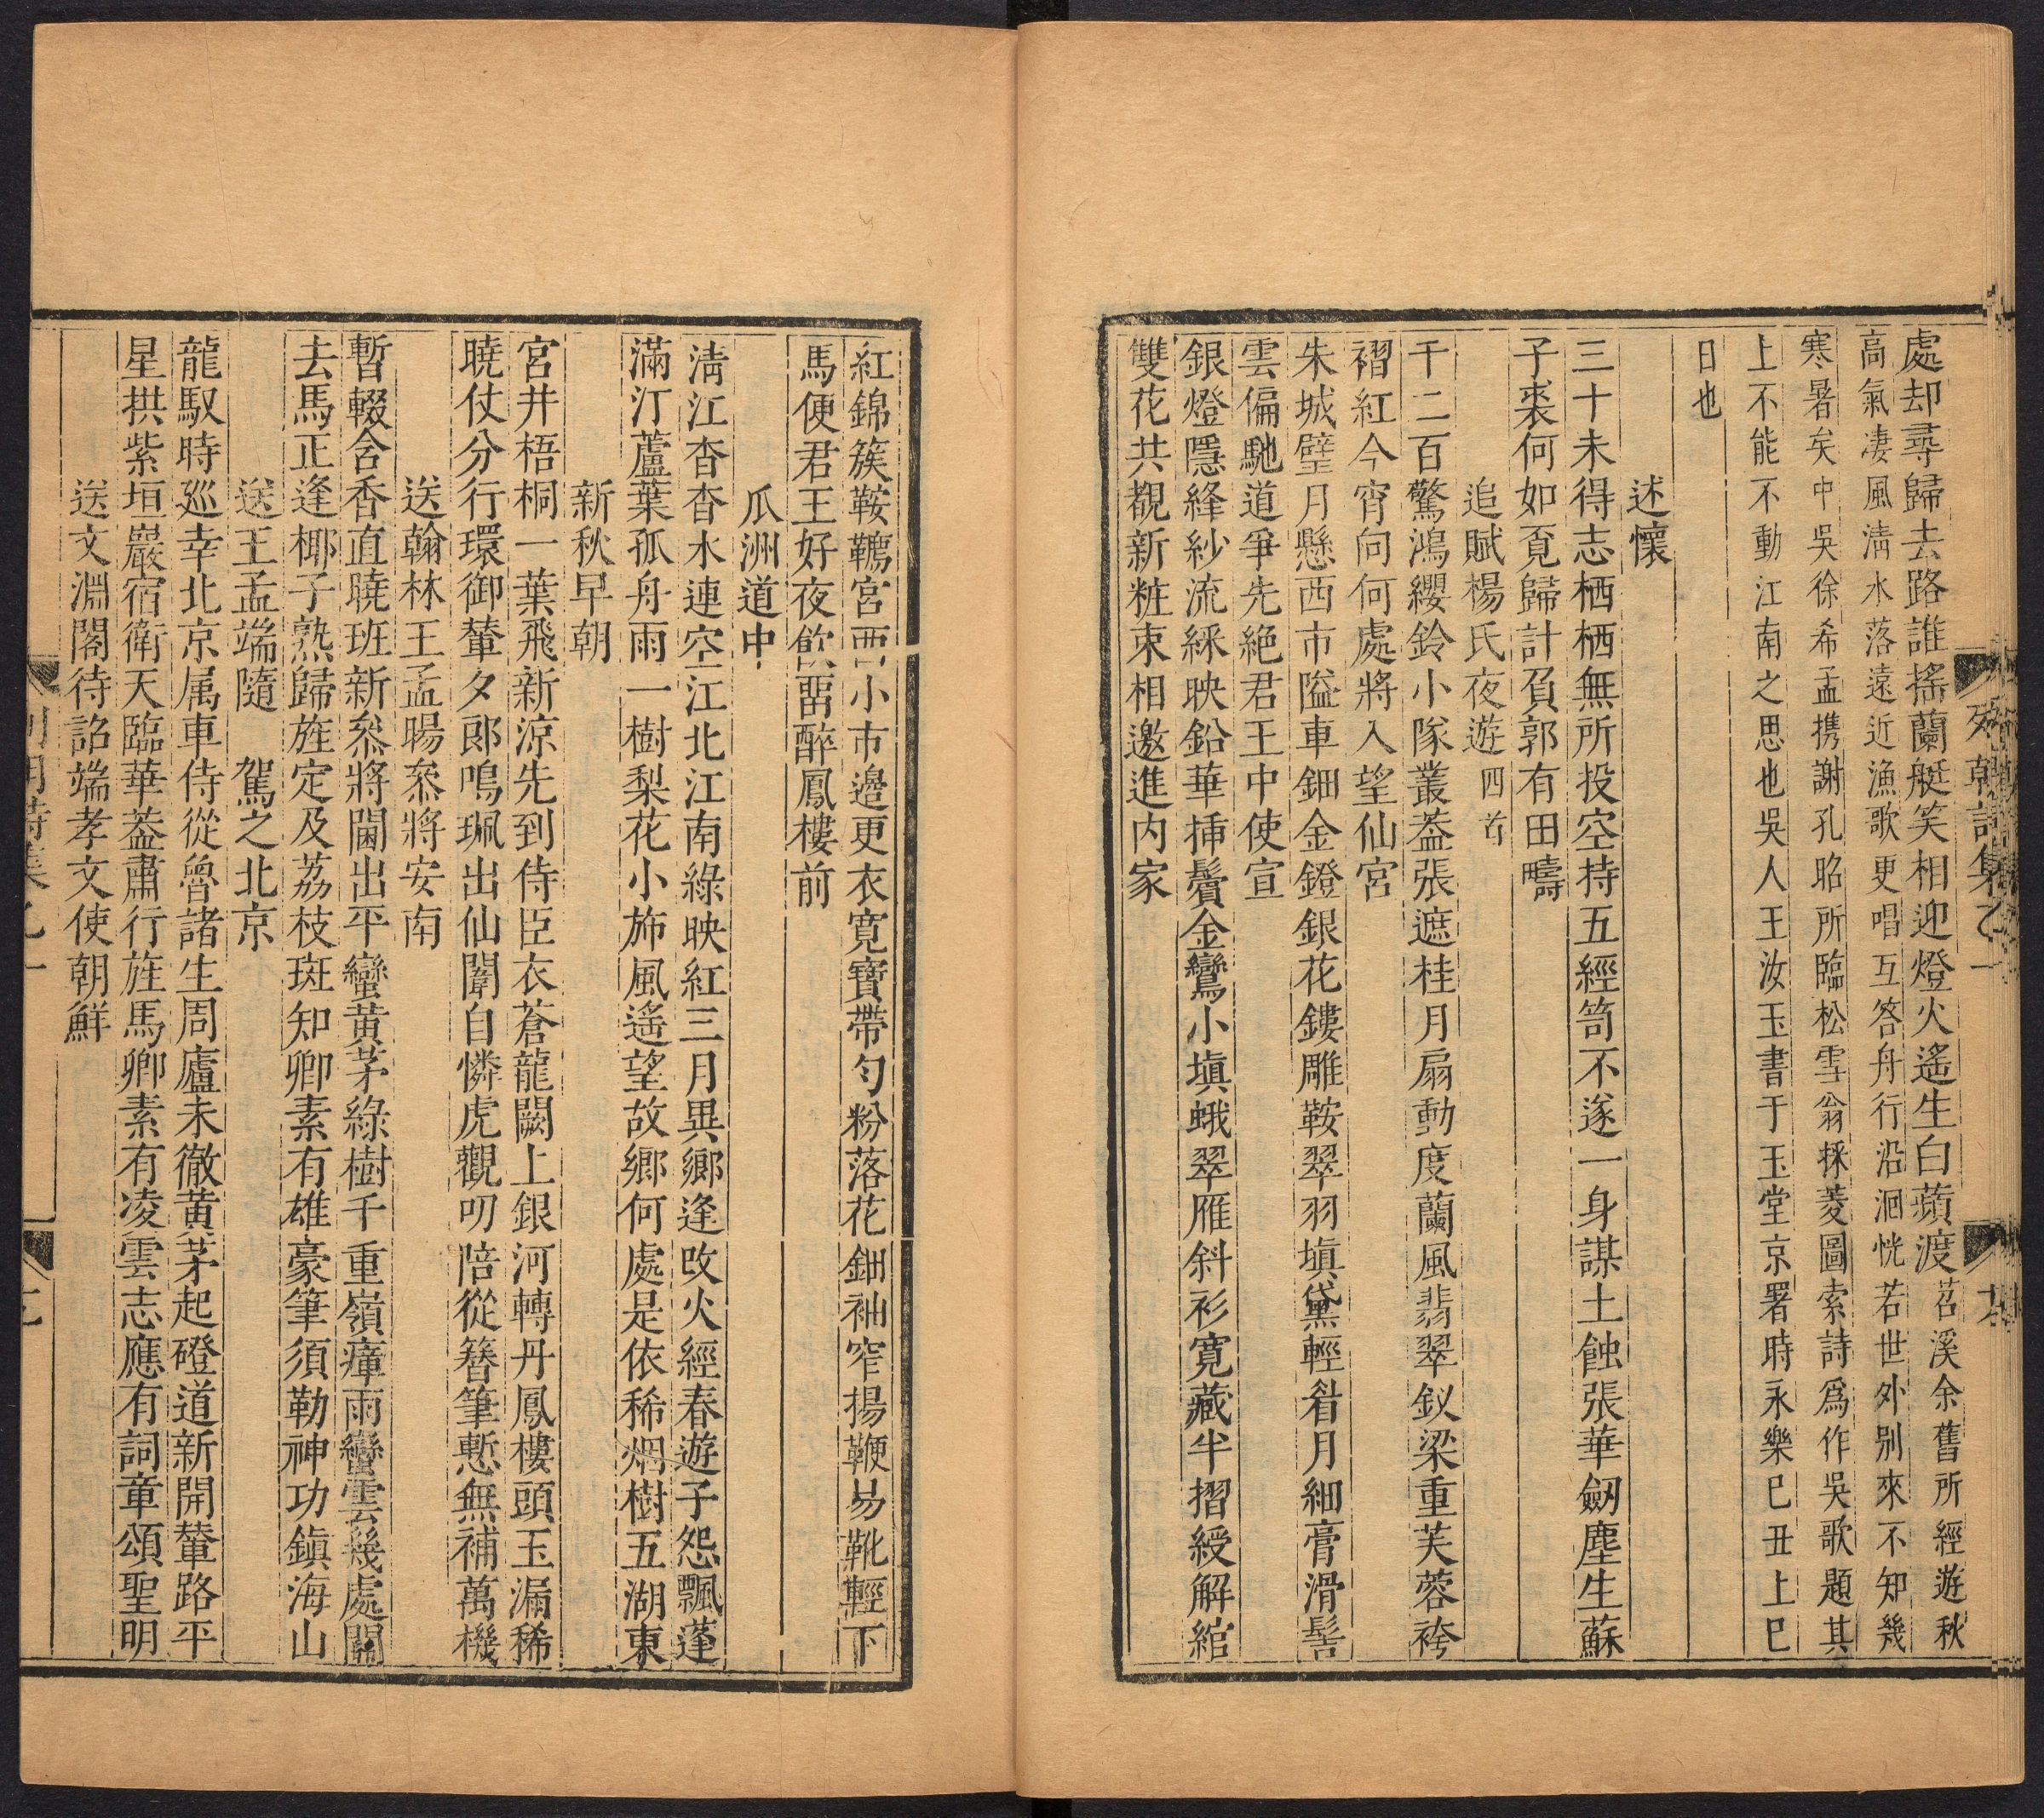 處却尋歸去路誰搖蘭艇笑相迎燈火遙生白蘋渡苕溪余舊所經遊秋
高氣凄風淸水落遠近漁歌更唱互答舟行沿洄恍若世外别來不知幾
寒暑矣中吳徐希孟携謝孔昭所臨松雪翁採菱圖索詩爲作吳歌題其
上不能不動江南之思也吳人王汝玉書于玉堂京署時永樂己丑上巳
日也
述懷
三十未得志栖栖無所投空持五經笥不遂一身謀土蝕張華劔塵生蘇
子裘何如覔歸計負郭有田疇
追賦楊氏夜遊四首
千二百驚鴻纓鈴小隊叢葢張遮桂月扇動度蘭風翡翠釵梁重芙蓉袴
褶紅今宵向何處將入望仙宮
朱城璧月懸西市隘車鈿金鐙銀花鏤雕鞍翠羽塡黛輕眉月細膏滑髻
雲偏馳道爭先絕君王中使宣
銀燈隱絳紗流綵映鉛華揷鬢金鸞小塡蛾翠雁斜衫寛藏半摺綬解綰
雙花共覩新粧束相邀進内家
列朝詩集 乙一
紅錦簇鞍韀宮西小市邉更衣寛寶帶勻粉落花鈿袖窄揚鞭易靴輕下
馬便君王好夜飮畱醉鳳樓前
瓜洲道中
淸江杳杳水連空江北江南綠映紅三月異鄕逢改火經春遊子怨飄蓬
滿汀蘆葉孤舟雨一樹梨花小斾風遙望故鄕何處是依稀烟樹五湖東
新秋早朝
宮井梧桐一葉飛新涼先到侍臣衣蒼龍闕上銀河轉丹鳳樓頭玉漏稀
曉仗分行環御輦夕郞鳴珮出仙闈自憐虎觀叨陪從簪筆慙無補萬機
送翰林王孟暘叅將安南
暫輟含香直曉班新叅將閫出平蠻黃茅綠樹千重嶺瘴雨蠻雲幾處關
去馬正逢椰子熟歸旌定及荔枝斑知卿素有雄豪筆須勒神功鎭海山
送王孟端隨　駕之北京
龍馭時廵幸北京属車侍從魯諸生周廬未徹黃茅起磴道新開輦路平
星拱紫垣嚴宿衛天臨華葢肅行旌馬卿素有凌雲志應有詞章頌聖明
送文淵閣待詔端孝文使朝鮮